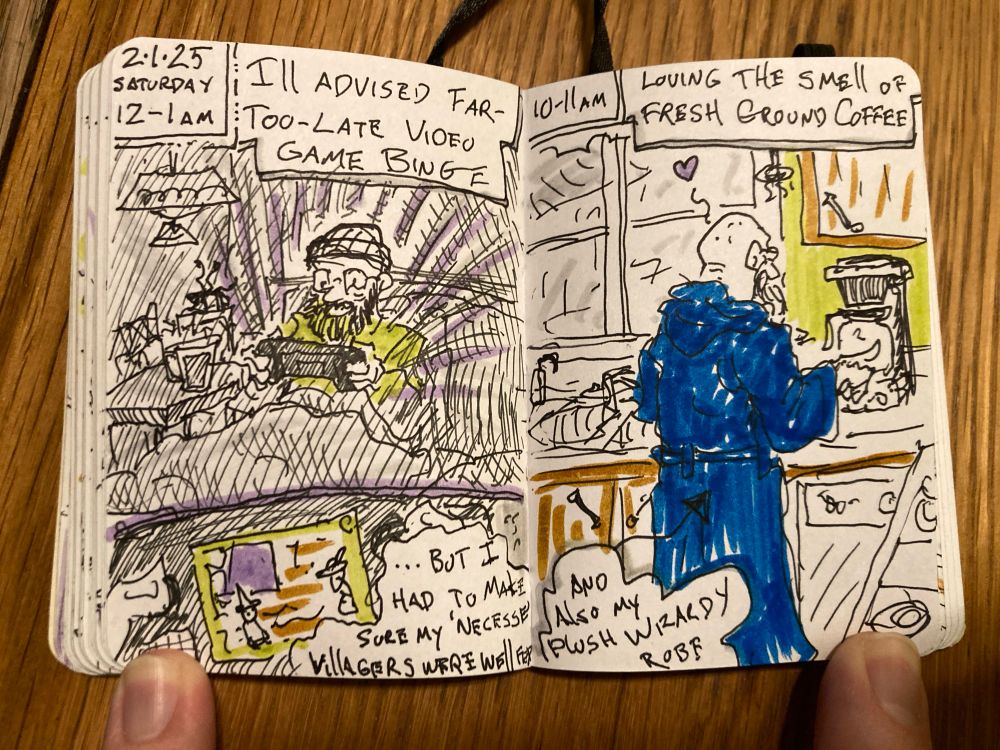 2.1.25
SATURDAY
12-1AM
Ill ADVISED FAR-
TOO-LATE VIDEO
GAME BINGE
...BUT I
HAD TO MAKE
SURE MY 'NECESSE'
VILLAGERS WERE WEll FED
10-11AM
LOVING THE SMELL OF
FRESH GROUND COFFEE
AND
ALSO MY
PLUSH WIZARDY
ROBE